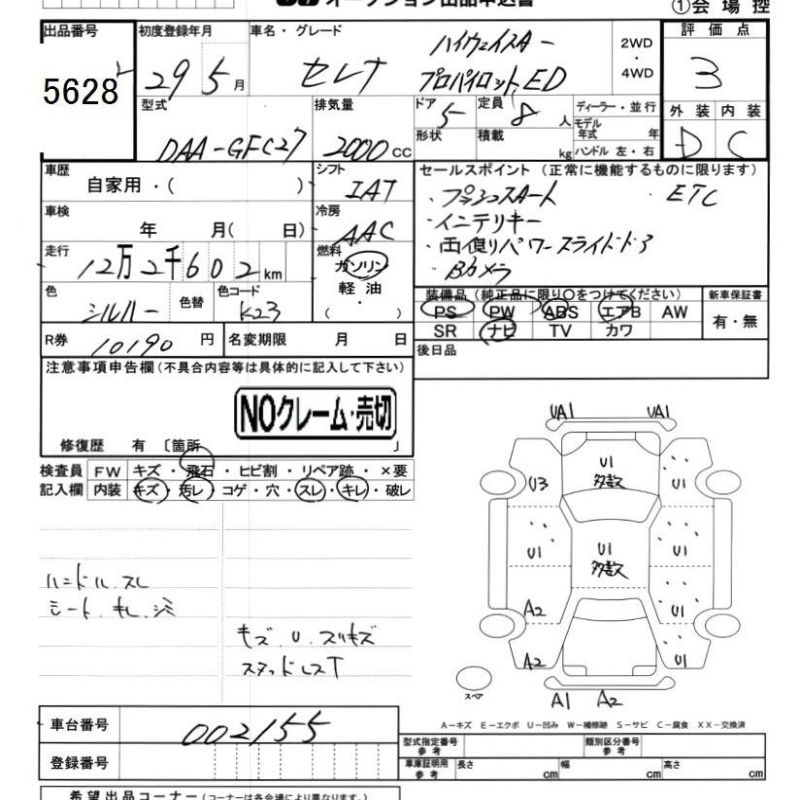 オークション出品申込書
①会場控
出品番号 初度登録年月 車名・グレード 評価点
5628 29 5月 セレナ ハイウェイスター 2WD・4WD 3
プロパイロットED
型式 排気量 ドア 5 定員 8人 ディーラー・並行
DAA-GFC27 2000cc 形状 積載 kg モデル年式 年
ハンドル 左・右
外装 内装
D C
車歴 自家用・( ) シフト IAT
車検 年 月( 日) 冷房 AAC
走行 12万2千602km 燃料 ガソリン
軽油
・( )
色 シルバー 色替 色コード K23
R券 10190円 名変期限 月 日
セールスポイント(正常に機能するものに限ります)
・プッシュスタート ・ETC
・インテリキー
・両側パワースライドドア
・Bカメラ
装備品(純正品に限り○をつけてください) 新車保証書
PS PW ABS エアB AW 有・無
SR ナビ TV カワ
後日品
注意事項申告欄(不具合内容等は具体的に記入して下さい)
NOクレーム・売切
修復歴 有 〔箇所 〕
検査員 FW キズ・飛石・ヒビ割・リペア跡・×要
記入欄 内装 キズ・汚レ・コゲ・穴・スレ・キレ・破レ
ハンドル.スレ
シート.キレ.シミ
キズ.U.スリキズ
スタッドレスT
UA1 UA1
U1 多数
U3 U1
U1 U1 多数 U1
A2 U1
A2 U1
スペア A1 A2
A-キズ E-エクボ U-凹み W-補修跡 S-サビ C-腐食 XX-交換済
車台番号 002155
登録番号
型式指定番号 参考 類別区分番号 参考
車庫証明用 参考 長さ cm 幅 cm 高さ cm
希望出品コーナー(コーナーは各会場により異なります。)